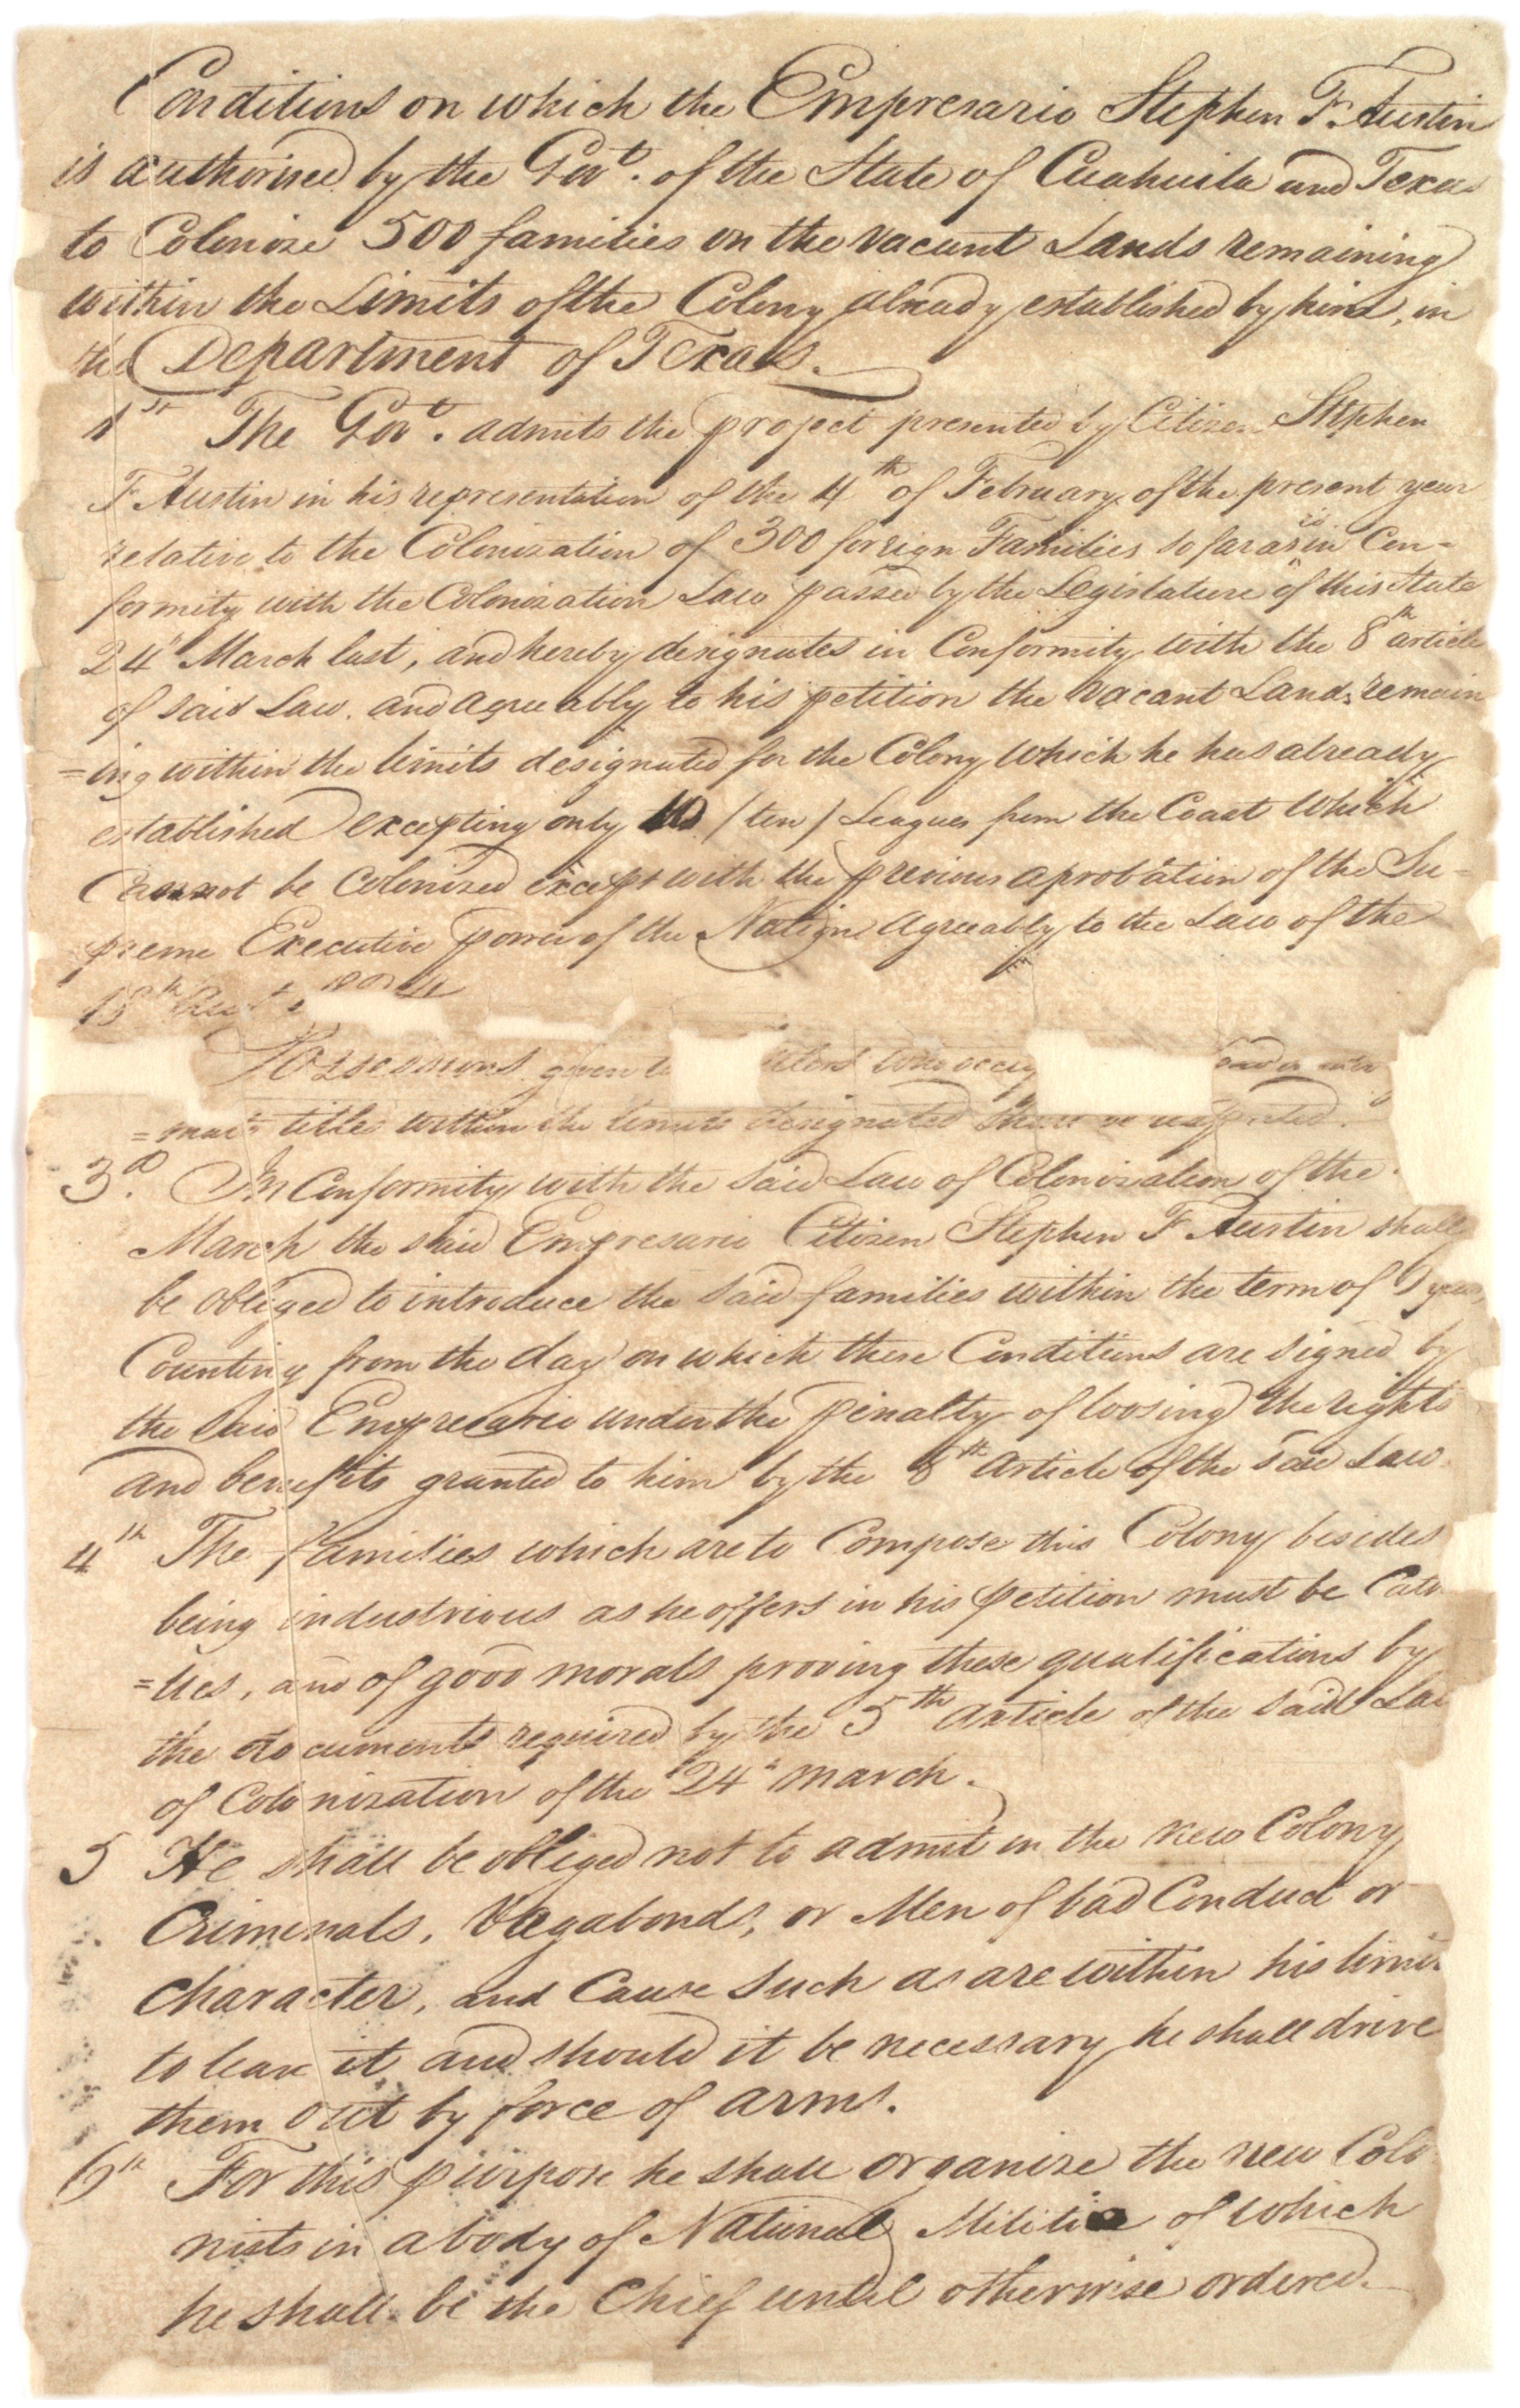 Conditions on which the Empresario Stephen F. Austin
is authorised by the Govt. of the State of Cuahuila and Texas
to Colonise 500 families on the vacant Lands remaining
within the Limits of the Colony already established by him, in
the Department of Texas.
1st The Govt. admits the project presented by Citizen Stephen
F. Austin in his representation of the 4th of February of the present year
relative to the Colonization of 300 foreign Families so far as is in Con-
formity with the Colonization Law passed by the Legislature of this State
24" March last, and hereby designates in Conformity with the 8th article
of said Law. and agreeably to his petition the vacant Lands remain
=ing within the limits designated for the Colony which he has already
established excepting only 10 (ten) Leagues from the Coast which
Cannot be Colonised except with the previous aprobation of the Su-
preme Executive power of the Nation agreeably to the Law of the
18th
Possessions given to who occu
titles within the limits designated shall be respected.
3d. In Conformity with the said Law of Colonization of the
March the said Empresario Citizen Stephen F Austin shall
be obliged to introduce the said families within the term of years
Counting from the day on which these Conditions are signed by
the said Empresario under the penalty of loosing the rights
and benefits granted to him by the 8th Article of the said Law.
4th The families which are to Compose this Colony besides
being industrious as he offers in his petition must be Cath
=lics, and of good morals proving these qualifications by
the documents required by the 5th Article of the said Law
of Colonization of the 24" March.
5 He shall be obliged not to admit in the new Colony
Criminals, Vagabonds, or Men of bad Conduct or
Character, and Cause such as are within his limits
to leave it, and should it be necessary he shall drive
them out by force of arms.
6th For this purpose he shall organise the new Colo
nists in a body of National Militia of which
he shall be the Chief until otherwise ordered.